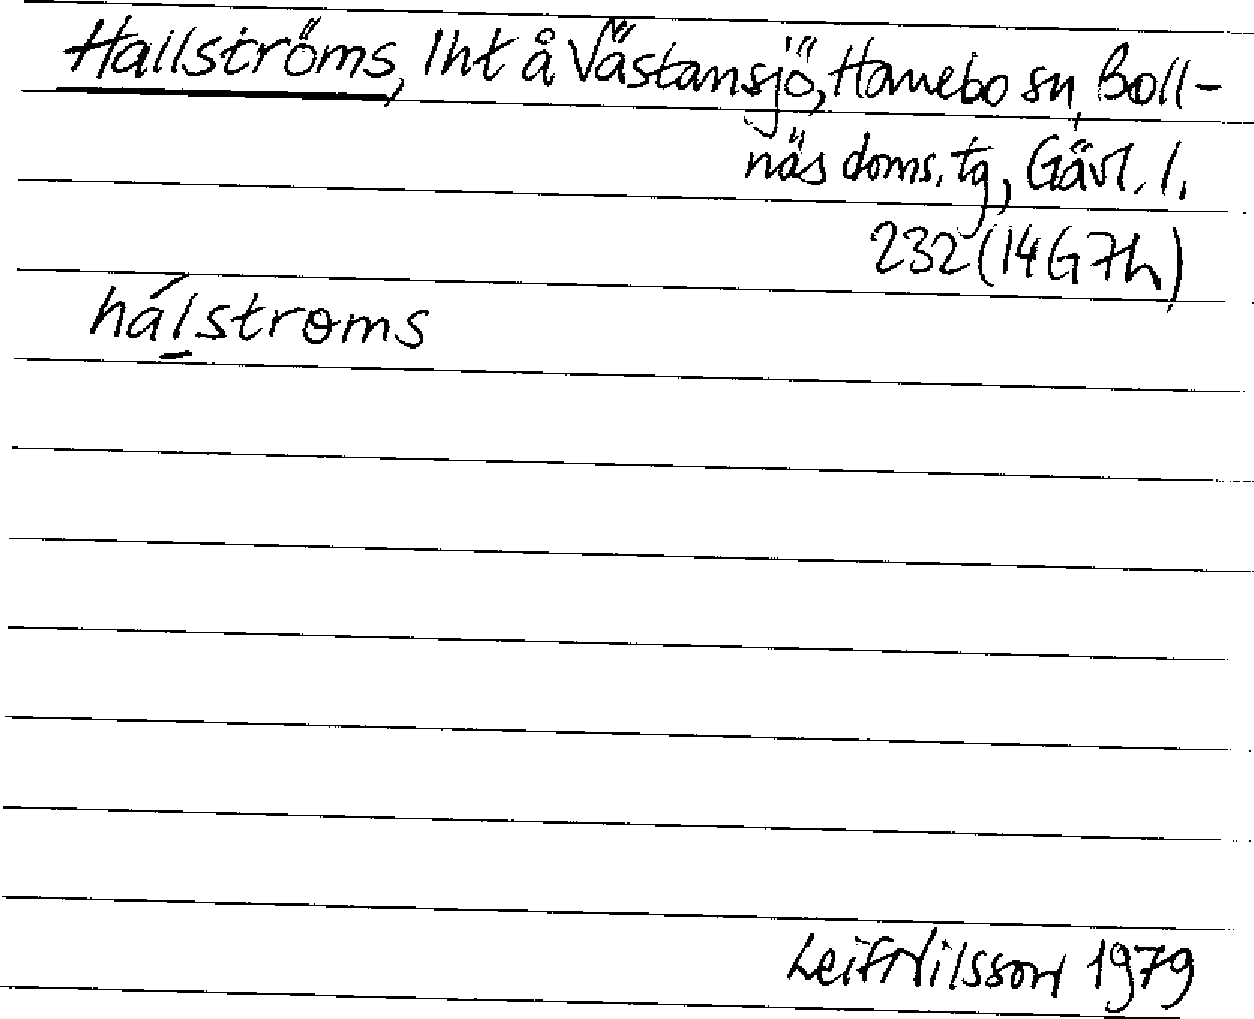 Hallströms, lht å Västansjö, Hanebo sn, Boll-
näs doms. tg, Gävl. l.
232 (14G7h)
hálstrɵms
Leif Nilsson 1979